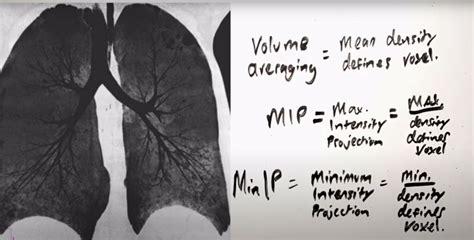 Volume averaging = Mean density defines voxel.
MIP = Max. Intensity Projection = Max. density defines voxel
MinIP = Minimum Intensity Projection = Min. density defines voxel